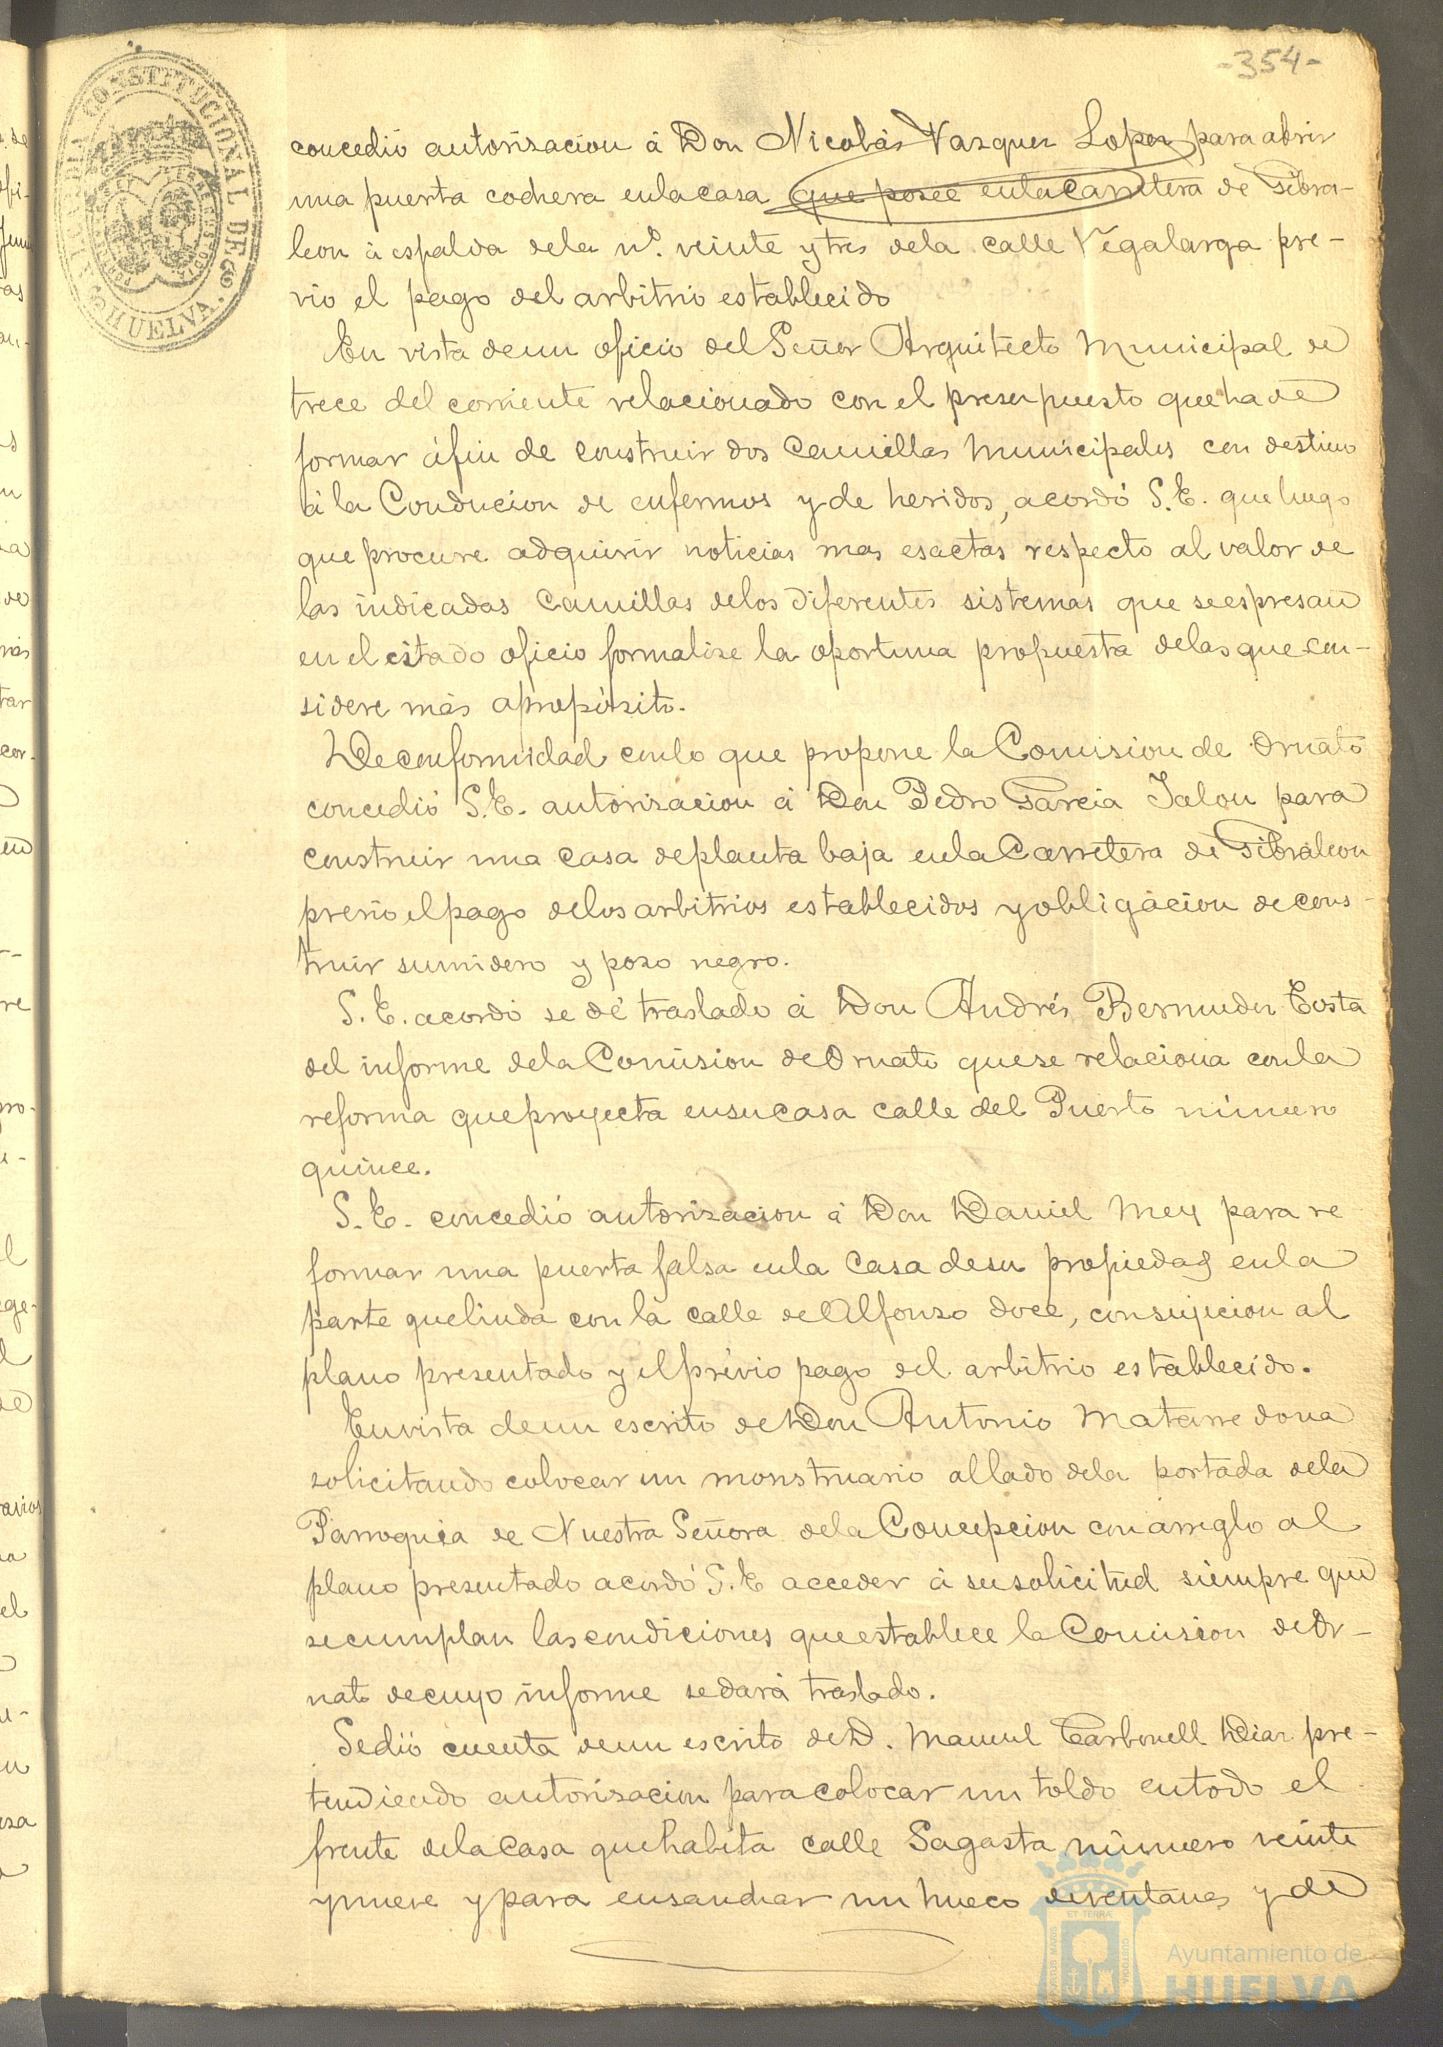 -354-
ALCALDIA CONSTITUCIONAL DE HUELVA.
concedió autorizacion á Don Nicolás Vazquez Lopez para abrir
una puerta cochera enlacasa que posee enlaCarretera de Gibra-
leon á espalda dela nº. veinte ytres dela calle Vegalarga pre-
vio el pago del arbitrio establecido
En vista deun oficio del Señor Arquitecto Municipal de
trece del corriente relacionado con el presupuesto queha de
formar áfin de construir dos Camillas Municipales con destino
á la Conducion de enfermos y de heridos, acordó S.E. queluego
que procure adquirir noticias mas esactas respecto al valor de
las indicadas Camillas delos diferentes sistemas que seespresan
en el citado oficio formalise la oportuna propuesta delasquecon-
sidere más apropósito.
Deconformidad conlo que propone la Comision de Ornato
concedió S.E. autorizacion á Don Pedro Garcia Jalon para
construir una casa deplanta baja enlaCarretera de Gibraleon
previo elpago delosarbitrios establecidos yobligacion decons-
truir sumidero y pozo negro.
S.E. acordó se dé traslado á Don Andrés Bermudez Costa
del informe delaComision deOrnato quese relaciona conla
reforma queproyecta ensucasa calle del Puerto número
quince.
S.E. concedió autorizacion á Don Daniel Mey para re
formar una puerta falsa enla casa desu propiedad enla
parte quelinda con la calle deAlfonso doce, consujecion al
plano presentado y elprévio pago del arbitrio establecido.
Envista deun escrito deDon Antonio Matarredona
solicitando colocar un monstruario allado dela portada dela
Parroquia de Nuestra Señora delaConcepcion conarreglo al
plano presentado acordó S.E acceder á susolicitud siempre que
secumplan lascondiciones queestablece laComision deOr-
nato decuyo informe sedará traslado.
Sedió cuenta deun escrito deD. Manuel Carbonell Diaz pre-
tendiendo autorizacion paracolocar un toldo entodo el
frente delacasa quehabita calle Sagasta número veinte
ynueve y para ensanchar un hueco deventana y de
Ayuntamiento de
HUELVA